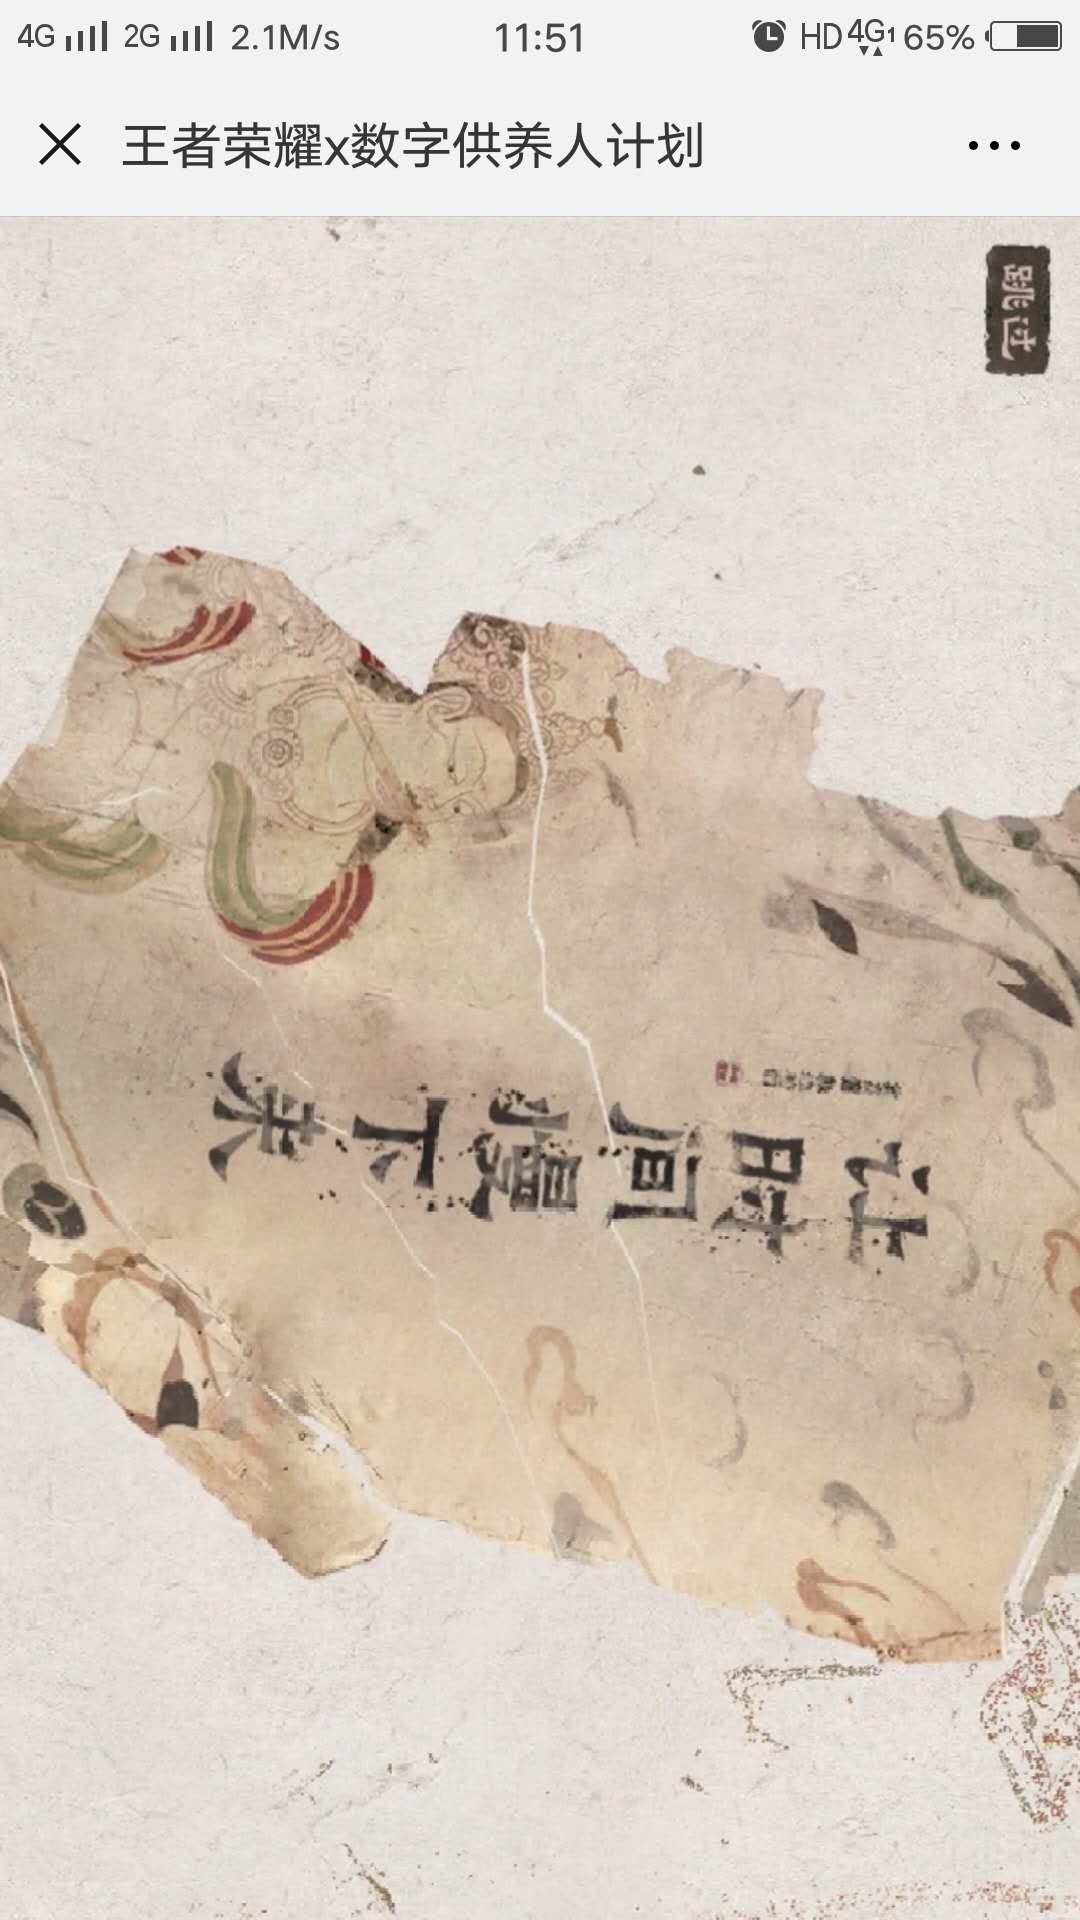 4G 2G 2.1M/s 11:51 HD 4G 1 65%
王者荣耀x数字供养人计划
跳过
让时间慢下来